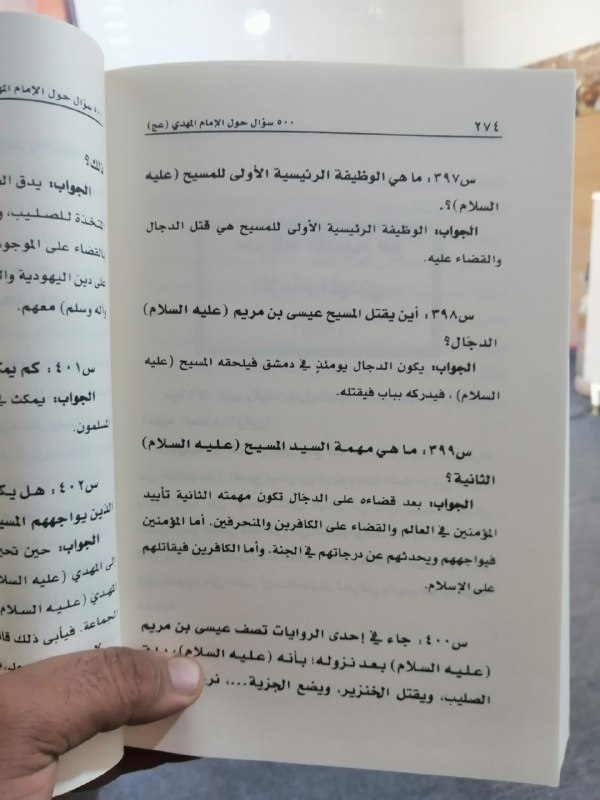 ٢٧٤ ٥٠٠ سؤال حول الإمام المهدي (عج)
س٣٩٧: ما هي الوظيفة الرئيسية الأولى للمسيح (عليه
السلام)؟.
الجواب: الوظيفة الرئيسية الأولى للمسيح هي قتل الدجال
والقضاء عليه.
س٣٩٨: أين يقتل المسيح عيسى بن مريم (عليه السلام)
الدجّال؟
الجواب: يكون الدجال يومئذٍ في دمشق فيلحقه المسيح (عليه
السلام) ، فيدركه بباب فيقتله.
س٣٩٩: ما هي مهمة السيد المسيح (عليه السلام)
الثانية؟
الجواب: بعد قضاءه على الدجّال تكون مهمته الثانية تأييد
المؤمنين في العالم والقضاء على الكافرين والمنحرفين. أما المؤمنين
فيواجههم ويحدثهم عن درجاتهم في الجنة. وأما الكافرين فيقاتلهم
على الإسلام.
س٤٠٠: جاء في إحدى الروايات تصف عيسى بن مريم
(عليه السلام) بعد نزوله؛ بأنه (عليه السلام)
الصليب، ويقتل الخنزير، ويضع الجزية...،
سؤال حول الإمام
ذلك؟
الجواب: يدق
المتخذة للصليب،
بالقضاء على
على دين اليهودية
وآله وسلم) معهم.
س٤٠١: كم
الجواب: يمكث
المسلمون.
س٤٠٢: هل
الذين يواجههم
الجواب: حين
إلى المهدي (عليه
المهدي (عليه السلام
الجماعة. فيأبى ذلك